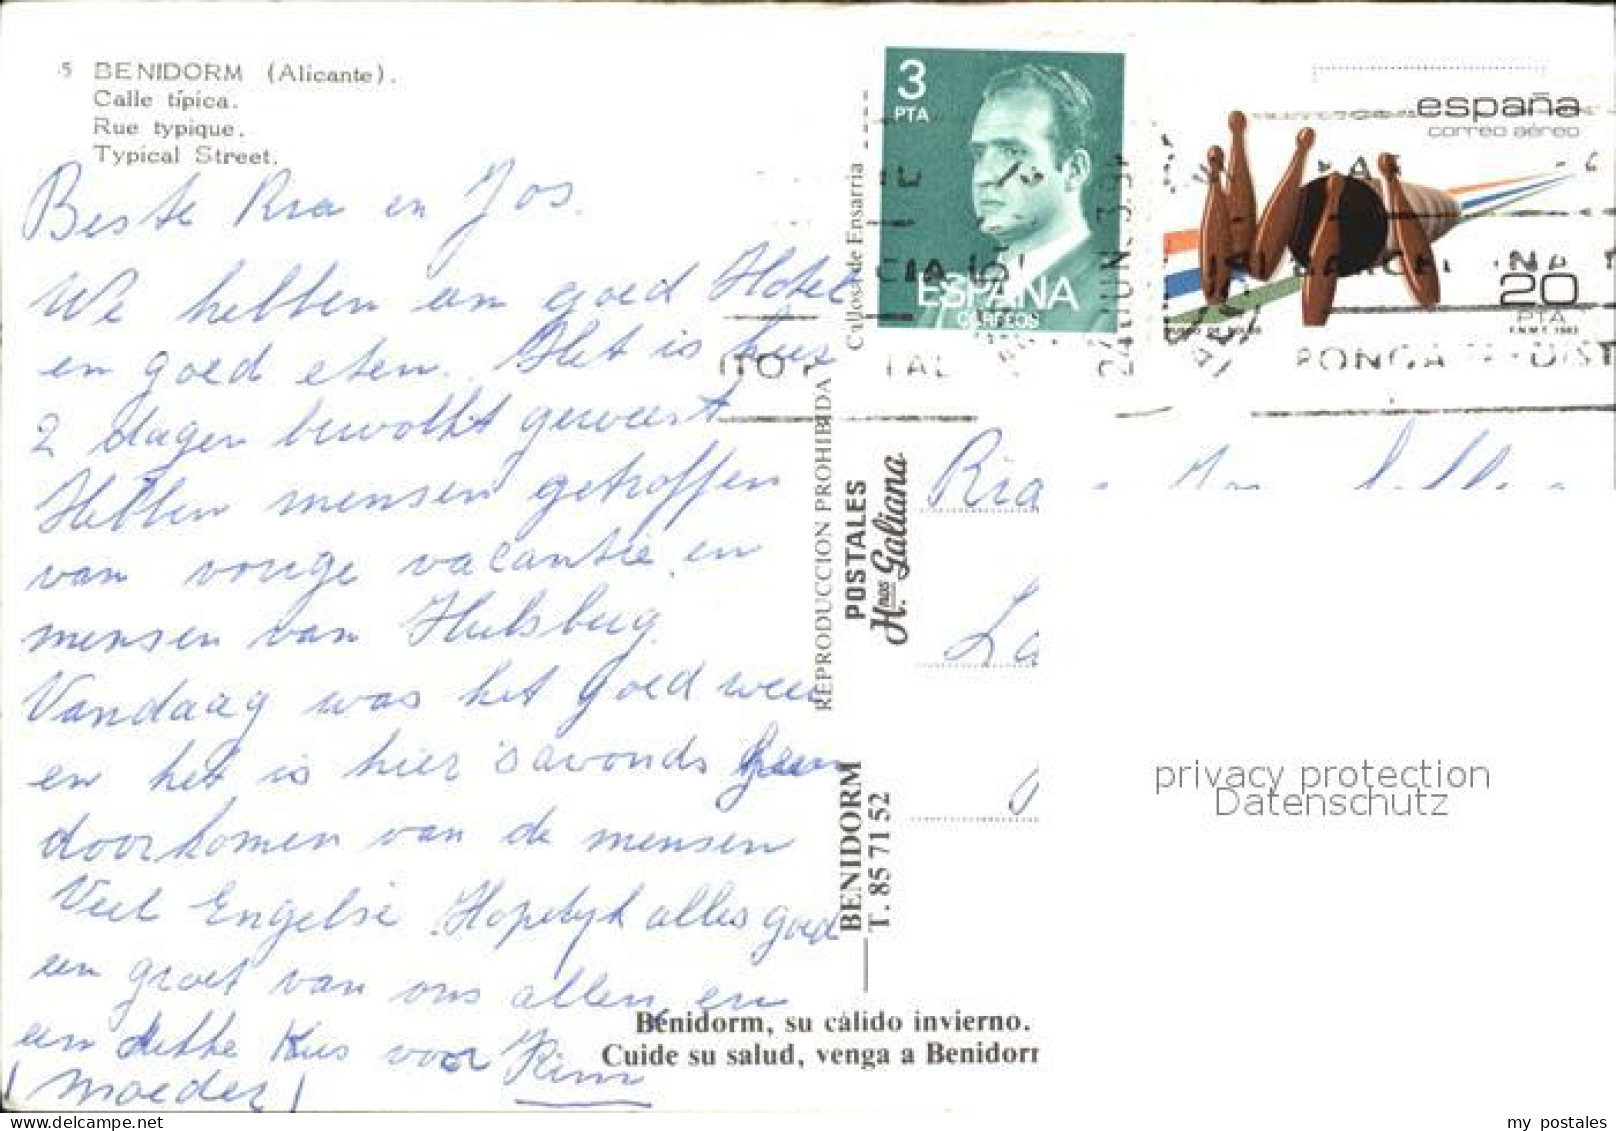 5 BENIDORM (Alicante).
Calle típica.
Rue typique.
Typical Street.
Beste Ria en Jos.
We hebben een goed Hotel
en goed eten. Het is hier
2 dagen bewolkt geweest
Hebben mensen getroffen
van vorige vacantie en
mensen van Hulsberg.
Vandaag was het goed weer
en het is hier 's avonds geen
doorkomen van de mensen
Veel Engelse. Hopelijk alles goed
een groet van ons allen, en
een dikke Kus voor Kim
(Moeder)
Callosa de Ensarria
REPRODUCCION PROHIBIDA
POSTALES
Hnos. Galiana
BENIDORM
T. 85 71 52
Benidorm, su cálido invierno.
Cuide su salud, venga a Benidorm
3
PTA
ESPAÑA
CORREOS
24 JUN
españa
correo aéreo
20
PTA
F.N.M.T. 1983
Ria
La
privacy protection
Datenschutz
my postales